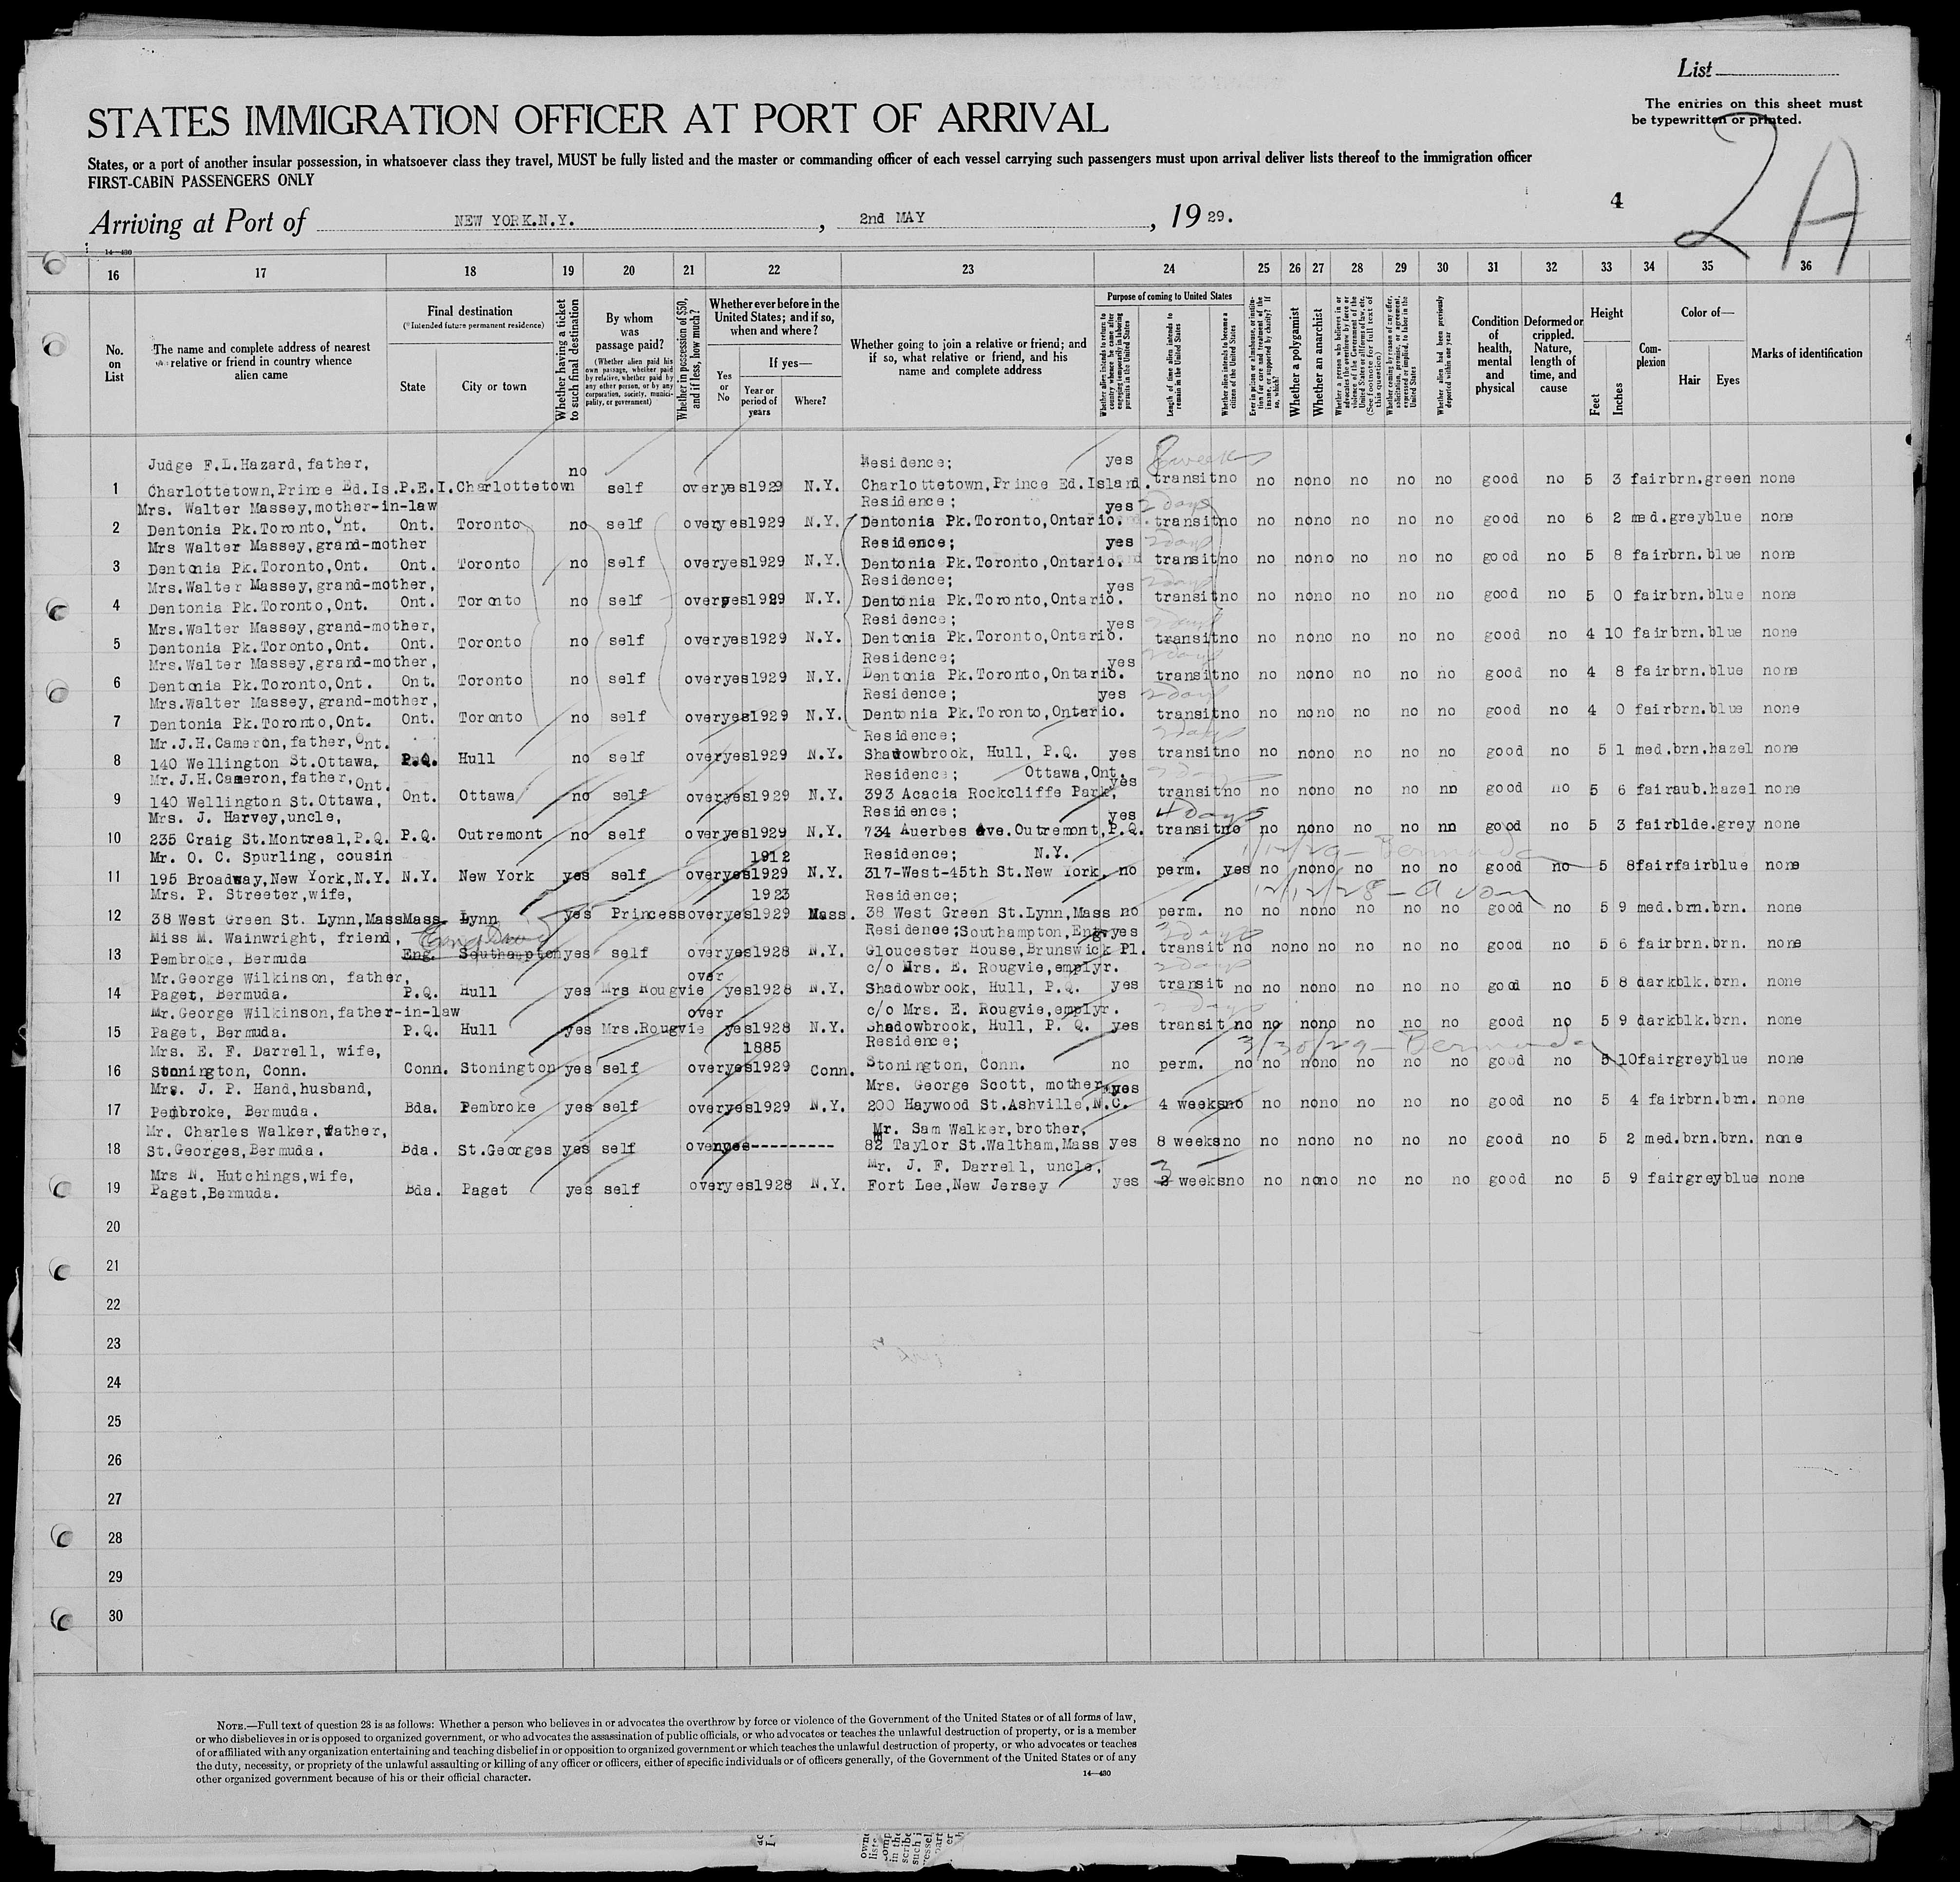 List
The entries on this sheet must
be typewritten or printed.
STATES IMMIGRATION OFFICER AT PORT OF ARRIVAL
States, or a port of another insular possession, in whatsoever class they travel, MUST be fully listed and the master or commanding officer of each vessel carrying such passengers must upon arrival deliver lists thereof to the immigration officer
FIRST-CABIN PASSENGERS ONLY
4 2 A
Arriving at Port of NEW YORK.N.Y., 2nd MAY, 19 29.
14—430
16 17 18 19 20 21 22 23 24 25 26 27 28 29 30 31 32 33 34 35 36
No. on List
The name and complete address of nearest relative or friend in country whence alien came
Final destination
(*Intended future permanent residence)
State
City or town
Whether having a ticket to such final destination
By whom was passage paid?
(Whether alien paid his own passage, whether paid by relative, whether paid by any other person, or by any corporation, society, municipality, or government)
Whether in possession of $50, and if less, how much?
Whether ever before in the United States; and if so, when and where?
If yes—
Yes or No
Year or period of years
Where?
Whether going to join a relative or friend; and if so, what relative or friend, and his name and complete address
Purpose of coming to United States
Whether alien intends to return to country whence he came after engaging temporarily in laboring pursuits in the United States
Length of time alien intends to remain in the United States
Whether alien intends to become a citizen of the United States
Ever in prison or almshouse, or institution for care and treatment of the insane, or supported by charity? If so, which?
Whether a polygamist
Whether an anarchist
Whether a person who believes in or advocates the overthrow by force or violence of the Government of the United States or all forms of law, etc. (See footnote for full text of this question)
Whether coming by reason of any offer, solicitation, promise, or agreement, expressed or implied, to labor in the United States
Whether alien had been previously deported within one year
Condition of health, mental and physical
Deformed or crippled. Nature, length of time, and cause
Height
Feet
Inches
Complexion
Color of—
Hair
Eyes
Marks of identification
Judge F.L.Hazard,father, no Residence; yes 8 weeks
1 Charlottetown,Prince Ed.Is. P.E.I. Charlottetown self over yes 1929 N.Y. Charlottetown,Prince Ed.Island. transit no no no no no no no good no 5 3 fair brn. green none
Mrs. Walter Massey,mother-in-law Residence; yes 2 days
2 Dentonia Pk.Toronto,Ont. Ont. Toronto no self over yes 1929 N.Y. Dentonia Pk.Toronto,Ontario. transit no no no no no no no good no 6 2 med. grey blue none
Mrs Walter Massey,grand-mother Residence; yes 2 days
3 Dentonia Pk.Toronto,Ont. Ont. Toronto no self over yes 1929 N.Y. Dentonia Pk.Toronto,Ontario. transit no no no no no no no good no 5 8 fair brn. blue none
Mrs.Walter Massey,grand-mother, Residence; yes 2 days
4 Dentonia Pk.Toronto,Ont. Ont. Toronto no self over yes 1929 N.Y. Dentonia Pk.Toronto,Ontario. transit no no no no no no no good no 5 0 fair brn. blue none
Mrs.Walter Massey,grand-mother, Residence; yes 2 days
5 Dentonia Pk.Toronto,Ont. Ont. Toronto no self over yes 1929 N.Y. Dentonia Pk.Toronto,Ontario. transit no no no no no no no good no 4 10 fair brn. blue none
Mrs.Walter Massey,grand-mother, Residence; yes 2 days
6 Dentonia Pk.Toronto,Ont. Ont. Toronto no self over yes 1929 N.Y. Dentonia Pk.Toronto,Ontario. transit no no no no no no no good no 4 8 fair brn. blue none
Mrs.Walter Massey,grand-mother, Residence; yes 2 days
7 Dentonia Pk.Toronto,Ont. Ont. Toronto no self over yes 1929 N.Y. Dentonia Pk.Toronto,Ontario. transit no no no no no no no good no 4 0 fair brn. blue none
Mr.J.H.Cameron,father,Ont. Residence; 2 days
8 140 Wellington St.Ottawa, P.Q. Hull no self over yes 1929 N.Y. Shadowbrook, Hull, P.Q. yes transit no no no no no no no good no 5 1 med. brn. hazel none
Mr.J.H.Cameron,father,Ont. Residence; Ottawa,Ont. yes 2 days
9 140 Wellington St.Ottawa, Ont. Ottawa no self over yes 1929 N.Y. 393 Acacia Rockcliffe Park, transit no no no no no no no good no 5 6 fair aub. hazel none
Mrs. J. Harvey,uncle, Residence; yes 4 days
10 235 Craig St.Montreal,P.Q. P.Q. Outremont no self over yes 1929 N.Y. 734 Auerbes Ave.Outremont,P.Q. transit no no no no no no no good no 5 3 fair blde. grey none
Mr. O. C. Spurling, cousin 1912 Residence; N.Y. 1/12/29 - Bermuda
11 195 Broadway,New York,N.Y. N.Y. New York yes self over yes 1929 N.Y. 317-West-45th St.New York. no perm. yes no no no no no no good no 5 8 fair fair blue none
Mrs. P. Streeter,wife, 1923 Residence; 12/12/28 - Avon
12 38 West Green St. Lynn,Mass Mass. Lynn yes Princess over yes 1929 Mass. 38 West Green St.Lynn,Mass no perm. no no no no no no no good no 5 9 med. brn. brn. none
Miss M. Wainwright, friend, Residence;Southampton,Eng. yes 3 days
13 Pembroke, Bermuda Eng. Southampton yes self over yes 1928 N.Y. Gloucester House,Brunswick Pl. transit no no no no no no no good no 5 6 fair brn. brn. none
Mr.George Wilkinson, father, over c/o Mrs. E. Rougvie,emplyr. 2 days
14 Paget, Bermuda. P.Q. Hull yes Mrs Rougvie yes 1928 N.Y. Shadowbrook, Hull, P.Q. yes transit no no no no no no no good no 5 8 dark blk. brn. none
Mr.George Wilkinson,father-in-law over c/o Mrs. E. Rougvie,emplyr. 2 days
15 Paget, Bermuda. P.Q. Hull yes Mrs.Rougvie yes 1928 N.Y. Shadowbrook, Hull, P. Q. yes transit no no no no no no no good no 5 9 dark blk. brn. none
Mrs. E. F. Darrell, wife, 1885 Residence; 3/30/29 - Bermuda
16 Stonington, Conn. Conn. Stonington yes self over yes 1929 Conn. Stonington, Conn. no perm. no no no no no no no good no 5 10 fair grey blue none
Mrs. J. P. Hand,husband, Mrs. George Scott, mother, yes
17 Pembroke, Bermuda. Bda. Pembroke yes self over yes 1929 N.Y. 200 Haywood St.Ashville,N.C. 4 weeks no no no no no no no good no 5 4 fair brn. brn. none
Mr. Charles Walker,father, Mr. Sam Walker,brother,
18 St.Georges,Bermuda. Bda. St.Georges yes self over ---------- 82 Taylor St.Waltham,Mass yes 8 weeks no no no no no no no good no 5 2 med. brn. brn. none
Mrs N. Hutchings,wife, Mr. J. F. Darrell, uncle, 3
19 Paget,Bermuda. Bda. Paget yes self over yes 1928 N.Y. Fort Lee,New Jersey yes 2 weeks no no no no no no no good no 5 9 fair grey blue none
20
21
22
23
24
25
26
27
28
29
30
NOTE.—Full text of question 28 is as follows: Whether a person who believes in or advocates the overthrow by force or violence of the Government of the United States or of all forms of law,
or who disbelieves in or is opposed to organized government, or who advocates the assassination of public officials, or who advocates or teaches the unlawful destruction of property, or is a member
of or affiliated with any organization entertaining and teaching disbelief in or opposition to organized government or which teaches the unlawful destruction of property, or who advocates or teaches
the duty, necessity, or propriety of the unlawful assaulting or killing of any officer or officers, either of specific individuals or of officers generally, of the Government of the United States or of any
other organized government because of his or their official character.
14—430